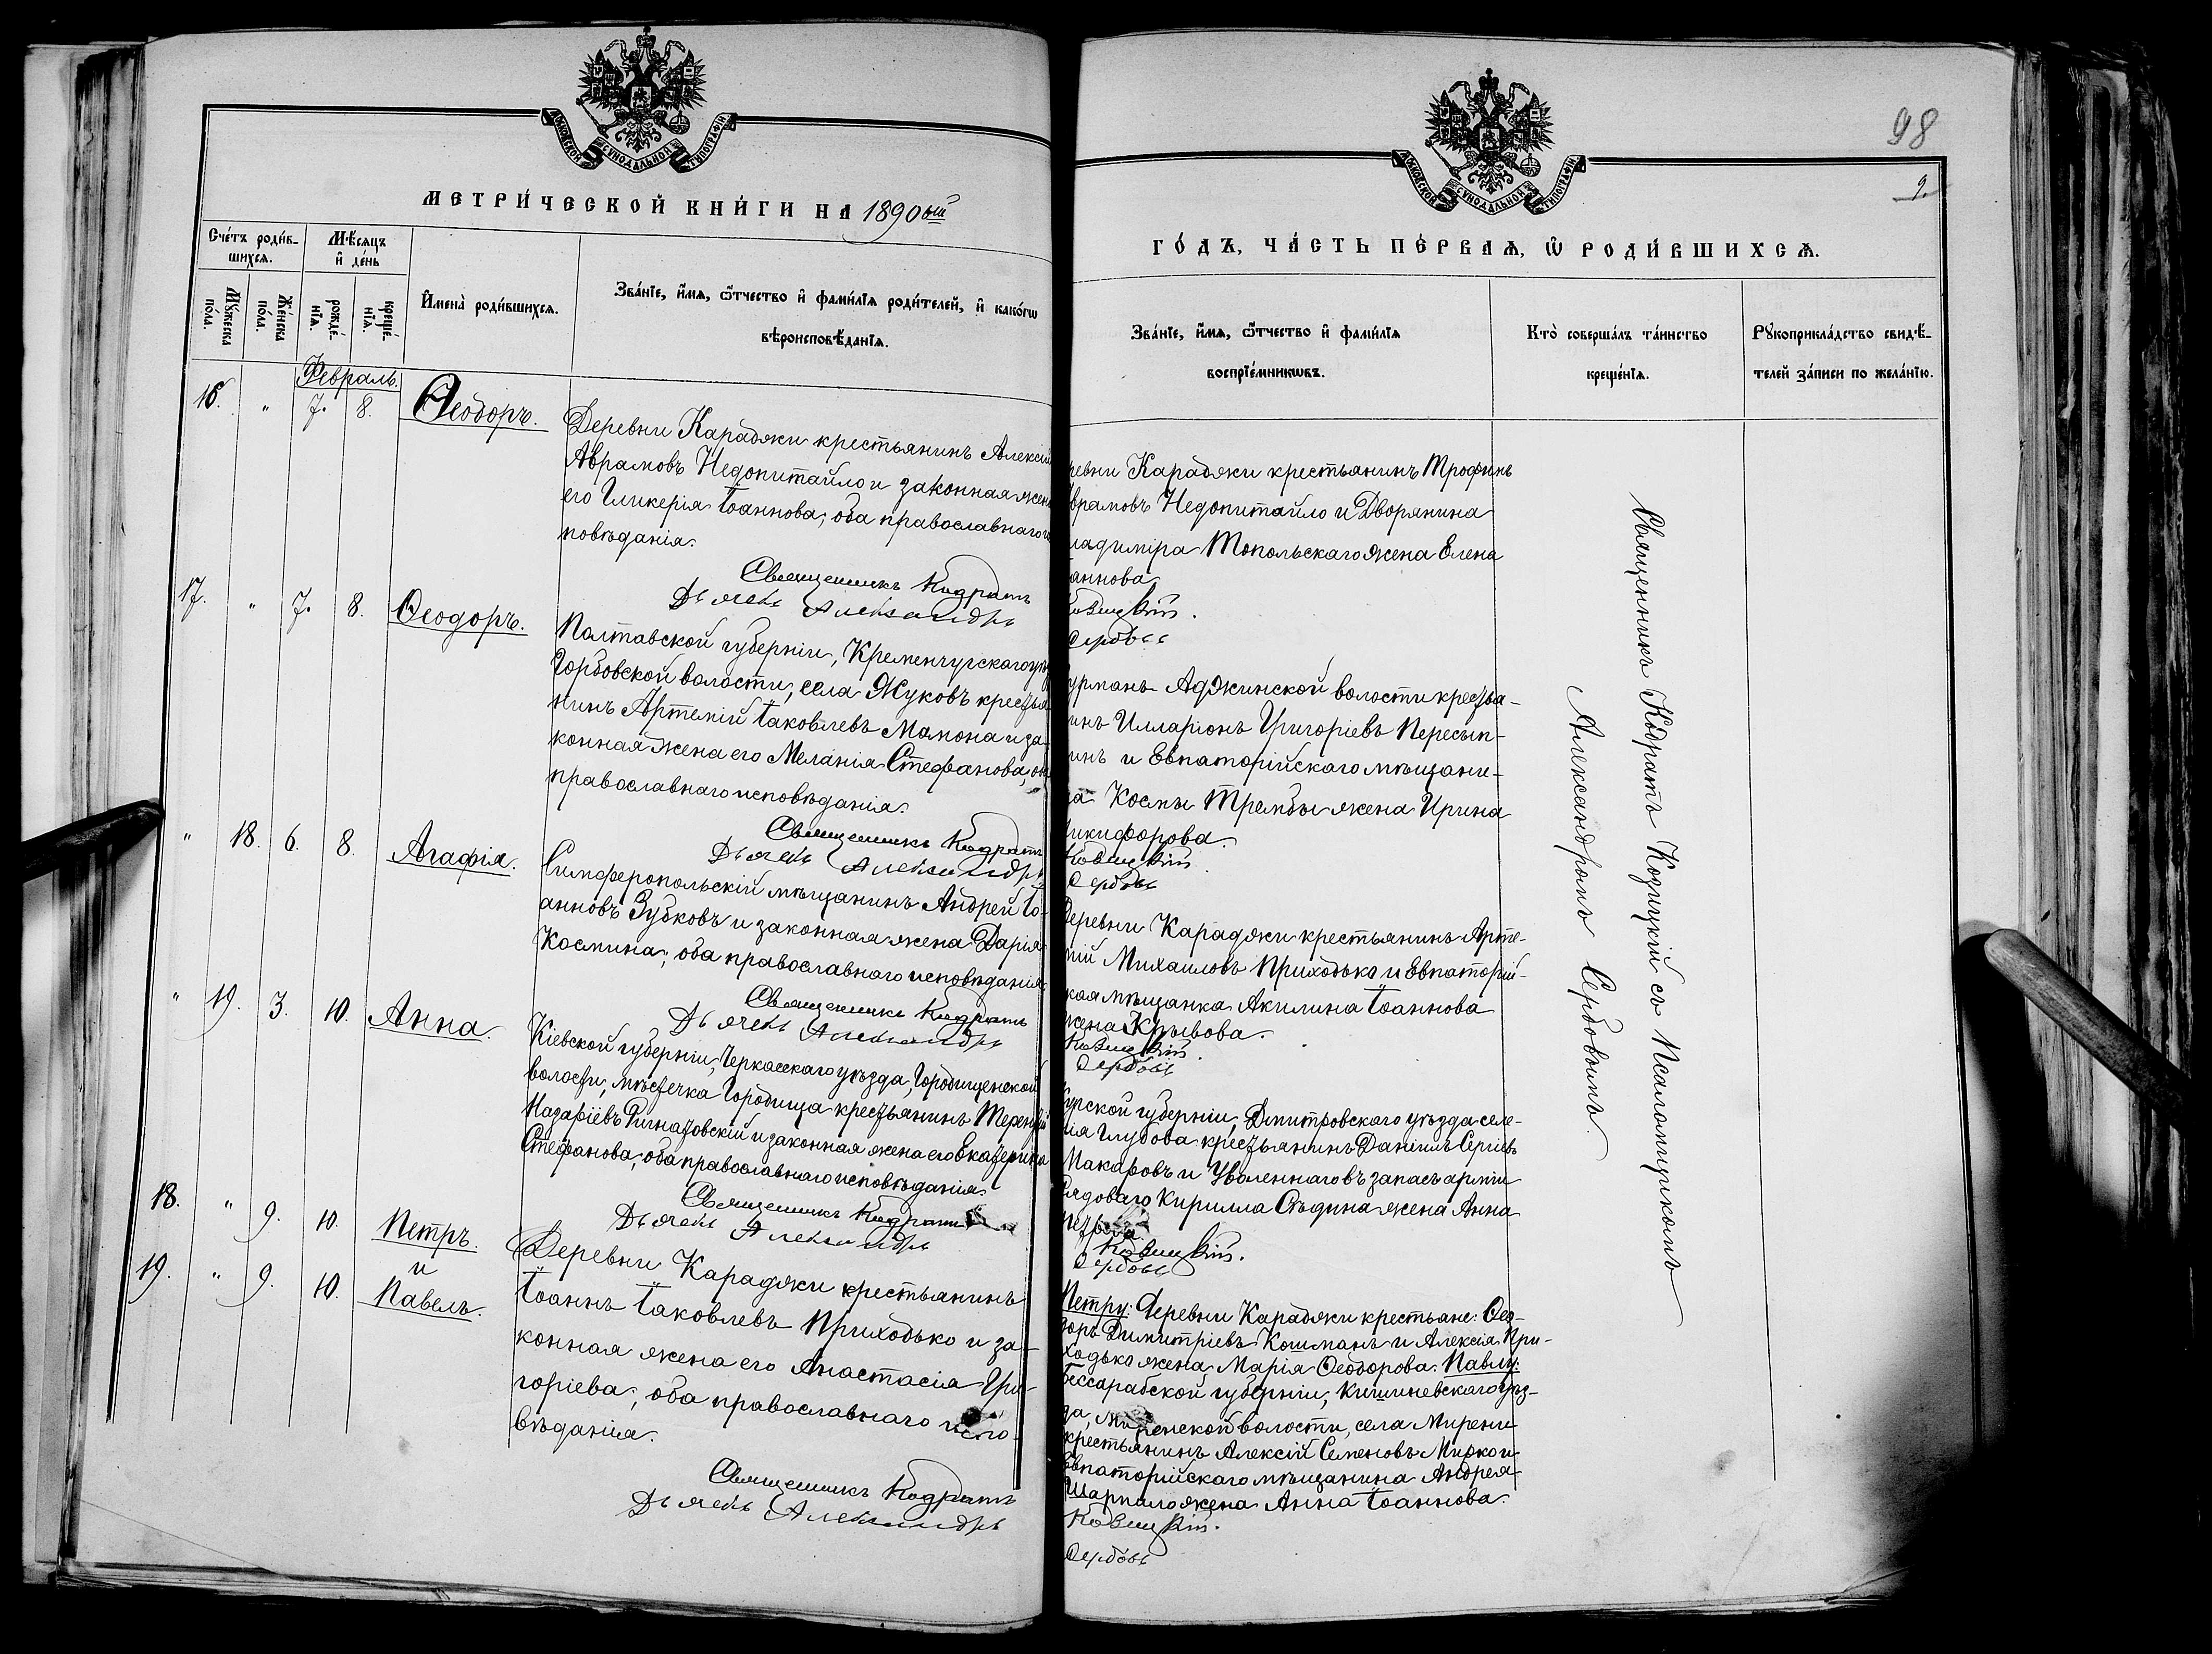 МОСКОВСКОЙ СУНОДАЛЬНОЙ ТИПОГРАФІИ
МЕТРИ́ЧЕСКОЙ КНИ́ГИ НА 1890ый
Сче́тъ роди́в-
шихсѧ.
Мѣ́сѧцъ
и҆ де́нь
Мꙋ́жеска
по́ла.
Же́нска
по́ла.
рожде́-
нїѧ.
креще́-
нїѧ.
И҆мена̀ роди́вшихсѧ.
Зва́нїе, и҆́мѧ, ѻ҆́тчество и҆ фами́лїѧ роди́телей, и҆ како́гѡ
вѣроисповѣ́данїѧ.
Февраль.
16. " 7. 8. Ѳеодоръ.
Деревни Караджи крестьянинъ Алексій
Аврамовъ Недопитайло и законная жена
его Гликерія Іоаннова; оба православнаго
повѣданія.
Священникъ Кодратъ
Дьячекъ Александръ
17. " 7. 8. Ѳеодоръ.
Полтавской губерніи, Кременчугскаго уѣз
Горбовской волости, села Жуковъ крестья
нинъ Артемій Іаковлевъ Мамона и за-
конная жена его Меланія Стефанова; о
православнаго исповѣданія.
Священникъ Кодратъ
Дьячекъ Александръ
" 18. 6. 8. Агафія.
Симферопольскій мѣщанинъ Андрей Іо-
анновъ Зубковъ и законная жена Дарія
Космина; оба православнаго исповѣданія.
Священникъ Кодратъ
Дьячекъ Александръ
" 19. 3. 10. Анна.
Кіевской губерніи, Черкасскаго уѣзда, Городищенской
волости, мѣстечка Городища крестьянинъ Терентій
Назаріевъ и законная жена его Екатерина
Стефанова; оба православнаго исповѣданія.
Священникъ Кодратъ
Дьячекъ Александръ
18. " 9. 10. Петръ.
и
19. " 9. 10. Павелъ.
Деревни Караджи крестьянинъ
Іоаннъ Іаковлевъ Приходько и за-
конная жена его Анастасія Гри-
горіева; оба православнаго испо-
вѣданія.
Священникъ Кодратъ
Дьячекъ Александръ
МОСКОВСКОЙ СУНОДАЛЬНОЙ ТИПОГРАФІИ
98
9.
ГО́ДЪ, ЧА́СТЬ ПЕ́РВАѦ, Ѡ҆ РОДИ́ВШИХСѦ.
Зва́нїе, и҆́мѧ, ѻ҆́тчество и҆ фами́лїѧ
воспрїе́мникѡвъ.
Кто̀ соверша́лъ та́инство
креще́нїѧ.
Рꙋкоприкла́дство свидѣ́-
телей за́писи по жела́нїю.
ревни Караджи крестьянинъ Трофимъ
врамовъ Недопитайло и Дворянина
ладиміра Топольскаго жена Елена
аннова
Козицкій.
Сербовъ
урманъ Аджинской волости крестья-
инъ Илларіонъ Григоріевъ Пересып-
инъ и Евпаторійскаго мѣщани-
на Космы Трембы жена Ирина
икифорова.
Козицкій
Сербовъ
Деревни Караджи крестьянинъ Арте-
мій Михаиловъ Приходько и Евпаторій-
кая мѣщанка Акилина Іоаннова
жена
Козицкій.
Сербовъ
Курской губерніи, Дмитровскаго уѣзда селе-
нія Глубова крестьянинъ Даніилъ Сергіевъ
Макаровъ и Уволеннаго въ запасъ арміи
Рядоваго Кирилла Сѣдина жена Анна
Петрова.
Козицкій.
Сербовъ
Петру: Деревни Караджи крестьяне: Ѳео-
доръ Димитріевъ Кошманъ и Алексія При-
ходька жена, Марія Ѳеодорова. Павлу:
Бессарабской губерніи, Кишиневскаго уѣз-
да, волости, села Мирени
крестьянинъ Алексій Семеновъ Мирко и
Евпаторійскаго мѣщанина Андрея
Шарпило жена Анна Іоаннова.
Козицкій.
Сербовъ
Священникъ Кодратъ Козицкій съ Псаломщикомъ
Александромъ Сербовымъ.